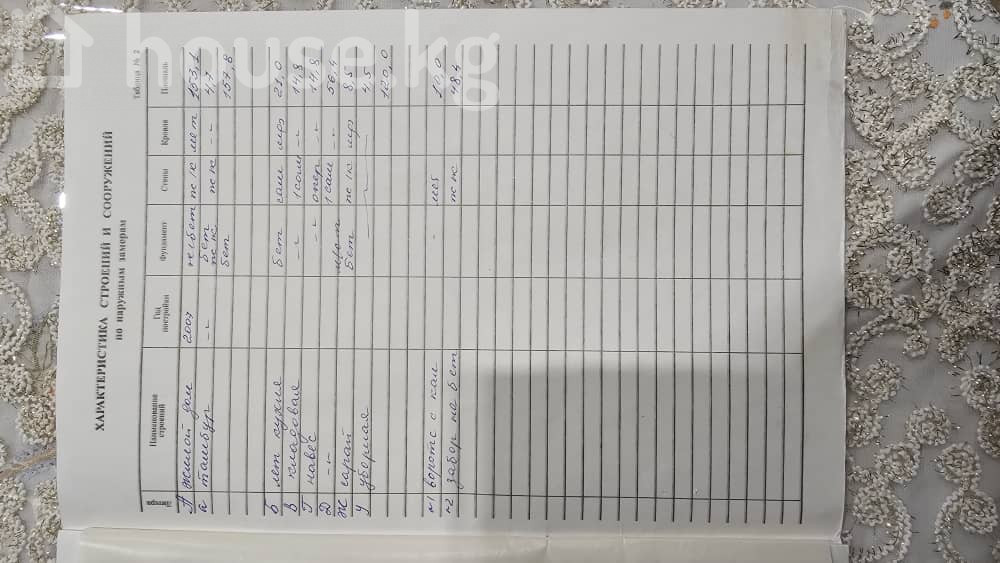 house.kg
Таблица № 2
ХАРАКТЕРИСТИКА СТРОЕНИЙ И СООРУЖЕНИЙ
по наружным замерам
Литера Наименование строений Год постройки Фундамент Стены Кровля Площадь
А жилой дом 2007 п/к мет 153,1
а тамбур -"- бет -"- 4,7
бет 157,8
Б лет кухня бет сам шф 21,0
В кладовая -"- 1 сам -"- 14,8
Г навес -"- опер -"- 14,8
Д -"- 1 сам -"- 56,4
Ж сарай бет шф 8,5
У уборная 4,5
120,0
№1 ворота с кал - 10,0
№2 забор на бет 48,4